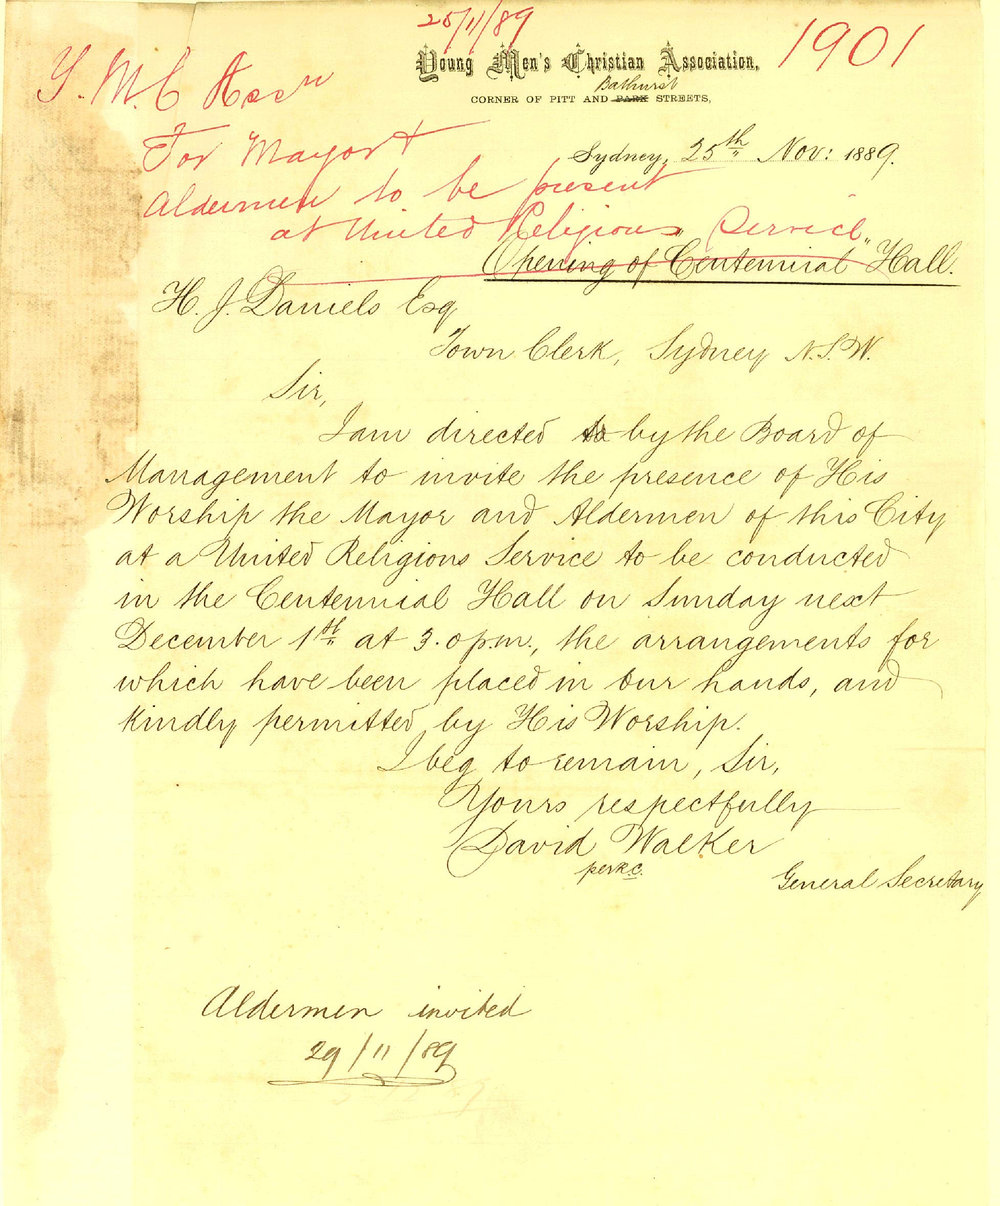 25/11/89
1901
Young Men's Christian Association,
Bathurst
CORNER OF PITT AND PARK STREETS,
Y. M. C Assn
For Mayor &
Aldermen to be present
at United Religious Service
Sydney, 25th Nov: 1889.
"Opening of Centennial" Hall.
H. J. Daniels Esq
Town Clerk, Sydney N.S.W.
Sir,
I am directed to by the Board of
Management to invite the presence of His
Worship the Mayor and Aldermen of this City
at a United Religious Service to be conducted
in the Centennial Hall on Sunday next
December 1st at 3.0 p.m., the arrangements for
which have been placed in our hands, and
kindly permitted by His Worship.
I beg to remain, Sir,
Yours respectfully
David Walker
General Secretary
Aldermen invited
29/11/89